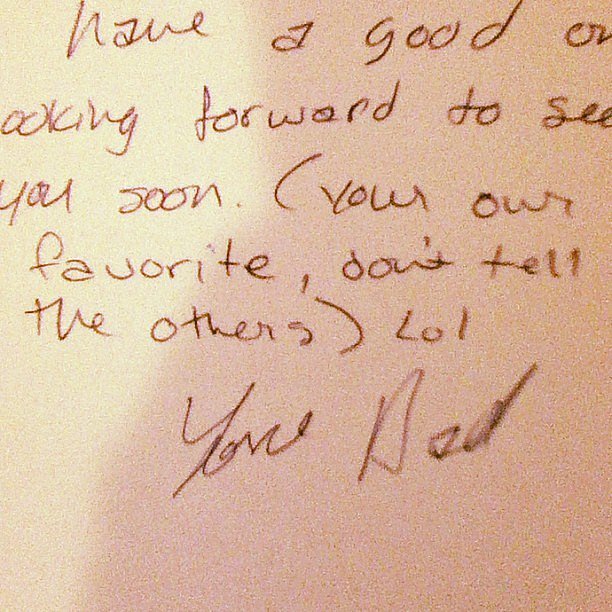 have a good on
ooking forward to see
you soon. (your our
favorite, don't tell
the others) Lol
Your Dad